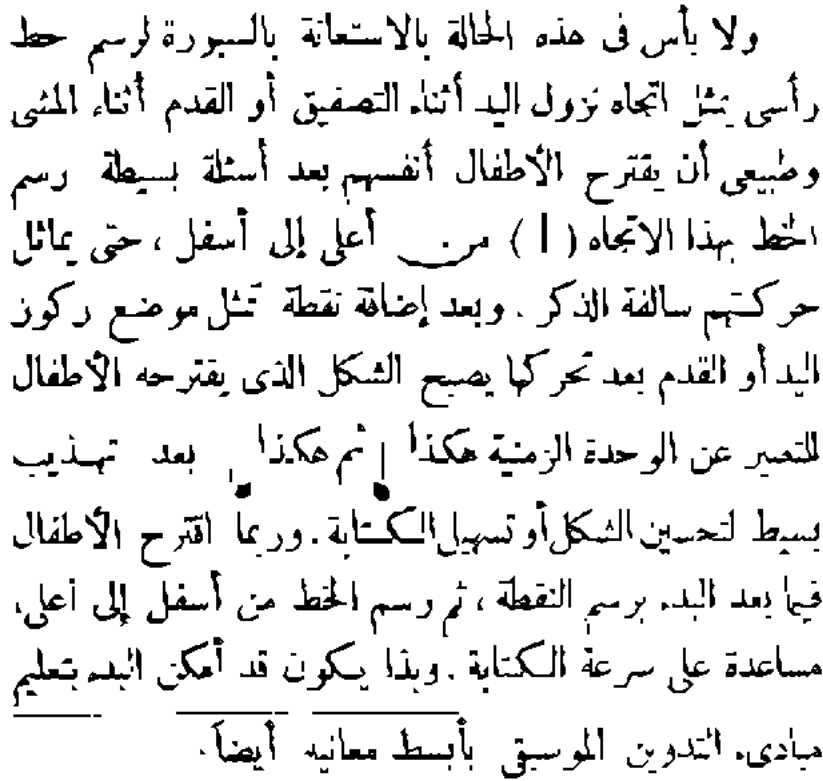 ولا بأس فى هذه الحالة بالاستعانة بالسبورة لرسم خط
رأسى يمثل اتجاه نزول اليد أثناء التصفيق أو القدم أثناء المشى
وطبيعى أن يقترح الأطفال أنفسهم بعد أسئلة بسيطة رسم
الخط بهذا الاتجاه ( | ) من أعلى إلى أسفل ، حتى يماثل
حركتهم سالفة الذكر . وبعد إضافة نقطة تمثل موضع ركوز
اليد أو القدم بعد تحركها يصبح الشكل الذى يقترحه الأطفال
للتعبير عن الوحدة الزمنية هكذا ثم هكذا بعد تهذيب
بسيط لتحسين الشكل أو تسهيل الكتابة . وربما اقترح الأطفال
فيما بعد البدء برسم النقطة ، ثم رسم الخط من أسفل إلى أعلى،
مساعدة على سرعة الكتابة . وبذا يكون قد أمكن البدء بتعليم
مبادىء التدوين الموسيقى بأبسط معانيه أيضاً .